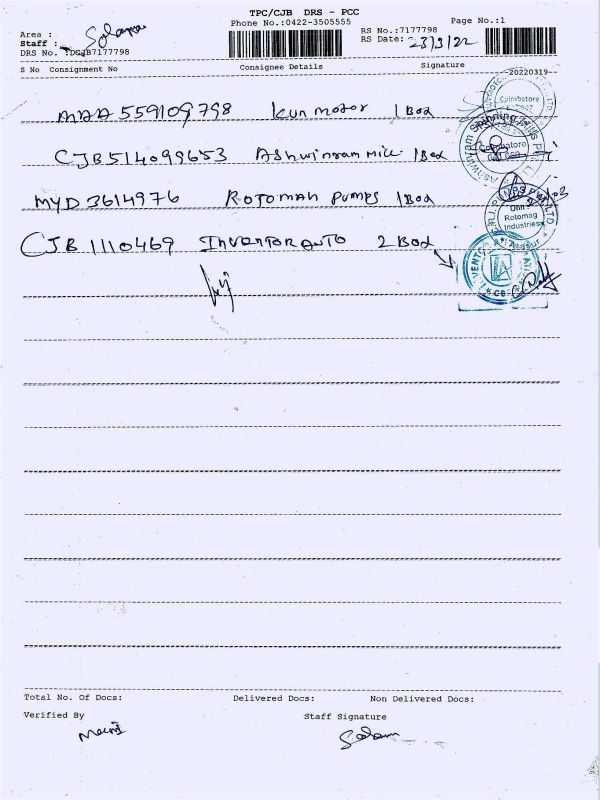 TPC/CJB DRS - PCC
Phone No.:0422-3505555
Page No.:1
Area :
RS No.:7177798
Staff :
RS Date:
DRS No. :DCJB7177798
S No Consignment No Consignee Details Signature
-20220319-
MAA 559109798 Kun motor 1 Box
CJB514099653 Ashwinram mill 1 Box
MYD 3614976 ROTOMAH PUMPS 1 Box
CJB 1110469 INVENTOR AUTO 2 Box
Coimbatore
Spinning Mills
Coimbatore
Unit
Rotomag
Industries
Arasur
Total No. Of Docs: Delivered Docs: Non Delivered Docs:
Verified By Staff Signature